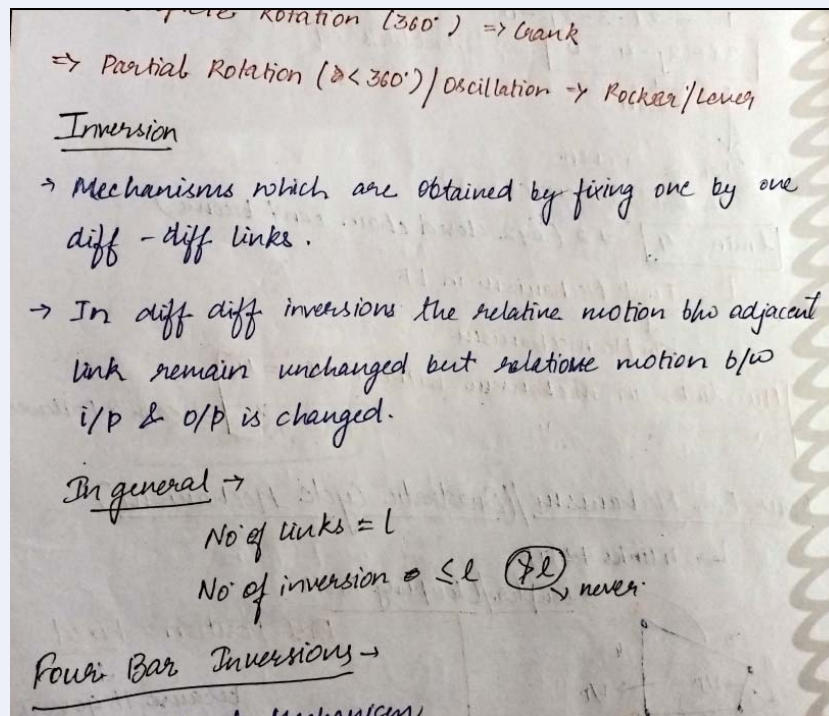 Rotation (360°) => Crank
=> Partial Rotation (<360°) / Oscillation → Rocker/Lever
Inversion
→ Mechanisms which are obtained by fixing one by one
diff - diff links.
→ In diff diff inversions the relative motion b/w adjacent
link remain unchanged but relative motion b/w
i/p & o/p is changed.
In general →
No of links = l
No of inversion ≤ l ≯l never.
Four Bar Inversions →
Mechanism